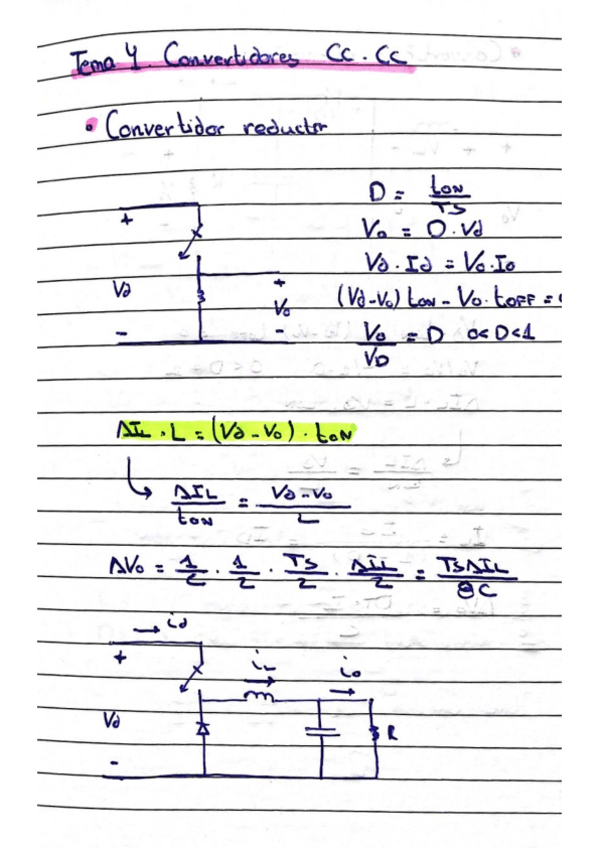 Tema 4. Convertidores CC-CC
• Convertidor reductor
D = tON / TS
Vo = D·Vd
Vd·Id = Vo·Io
(Vd-Vo) tON - Vo·tOFF =
Vo / VD = D 0<D<1
+
Vd
-
+
Vo
-
ΔIL·L = (Vd-Vo)·tON
↳ ΔIL / tON = Vd-Vo / L
ΔVo = 1/C · 1/2 · TS/2 · ΔIL/2 = TSΔIL / 8C
→ id
+
Vd
-
iL
→
io
→
R